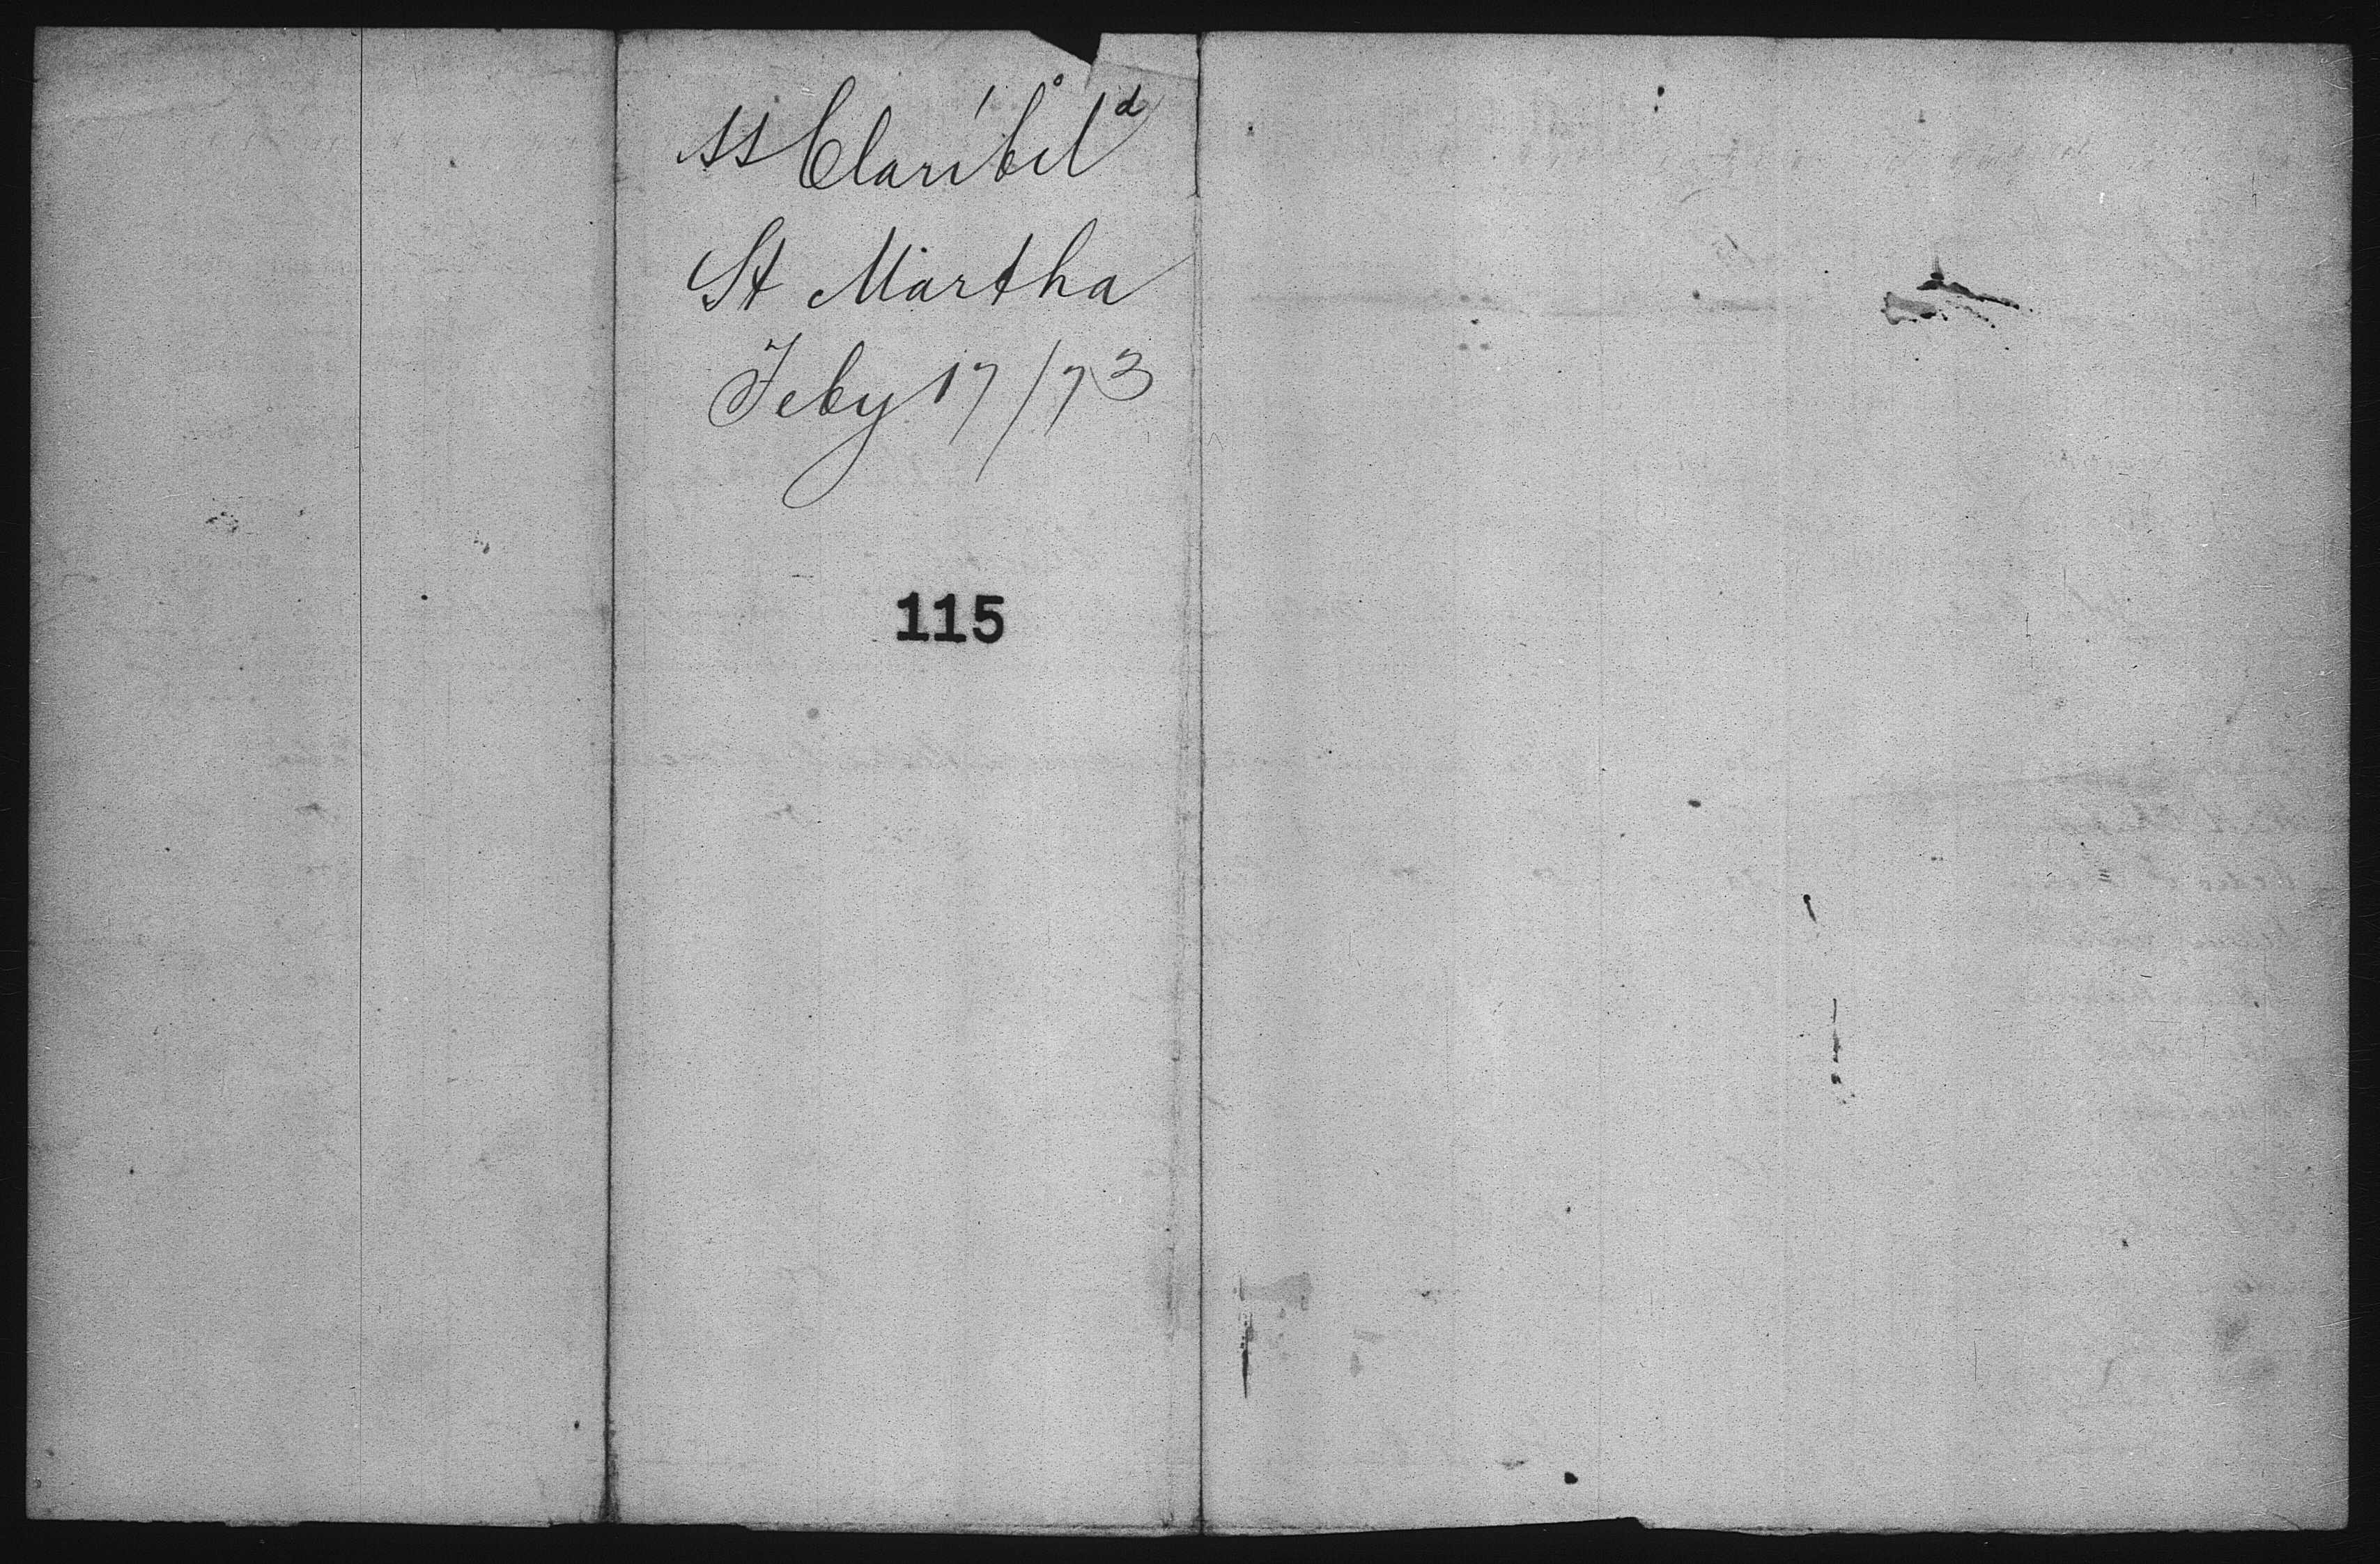 SS Claribel
St Martha
Feby 17/73
115